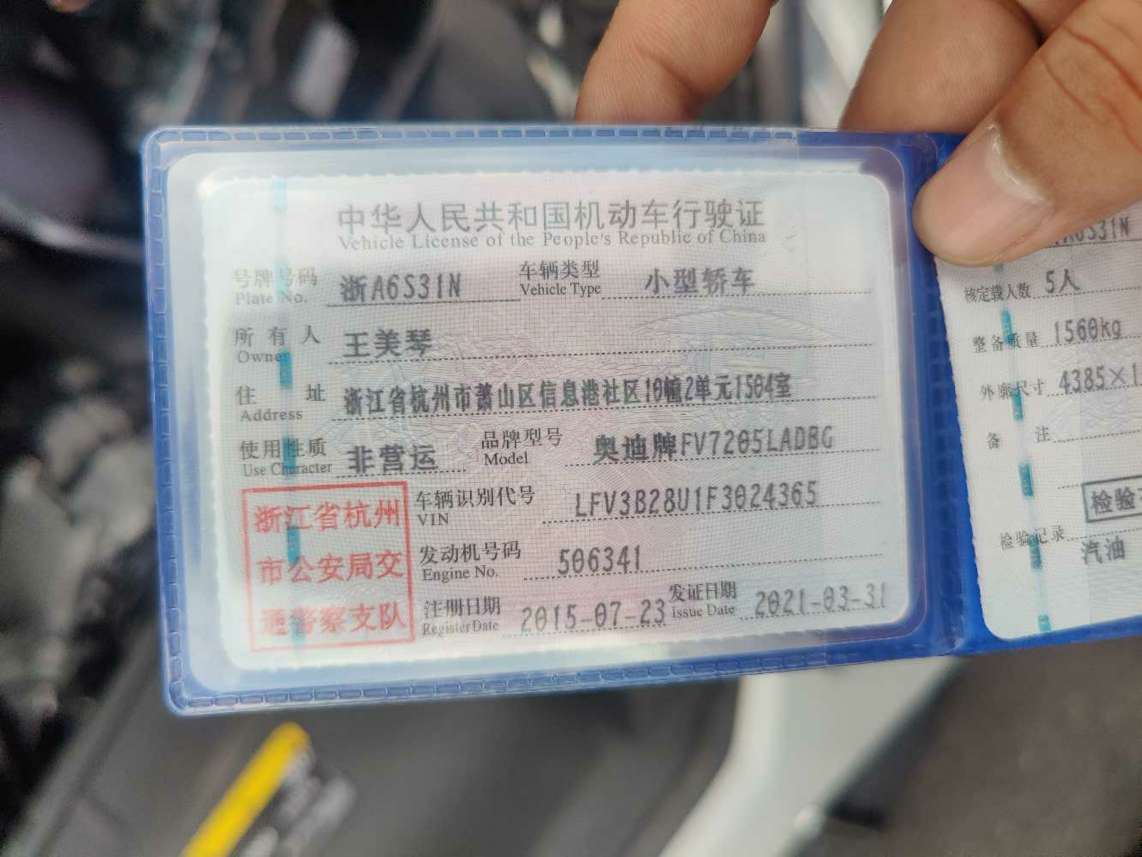 中华人民共和国机动车行驶证
Vehicle License of the People's Republic of China
号牌号码 浙A6S31N 车辆类型 小型轿车
Plate No. Vehicle Type
所有人 王美琴
Owner
住址 浙江省杭州市萧山区信息港社区10幢2单元1504室
Address
使用性质 非营运 品牌型号 奥迪牌FV7205LADBG
Use Character Model
浙江省杭州
市公安局交
通警察支队
车辆识别代号 LFV3B28U1F3024365
VIN
发动机号码 506341
Engine No.
注册日期 2015-07-23 发证日期 2021-03-31
Register Date Issue Date
A6S31N
核定载人数 5人
整备质量 1560kg
外廓尺寸 4385×1
备注
检验
检验记录
汽油